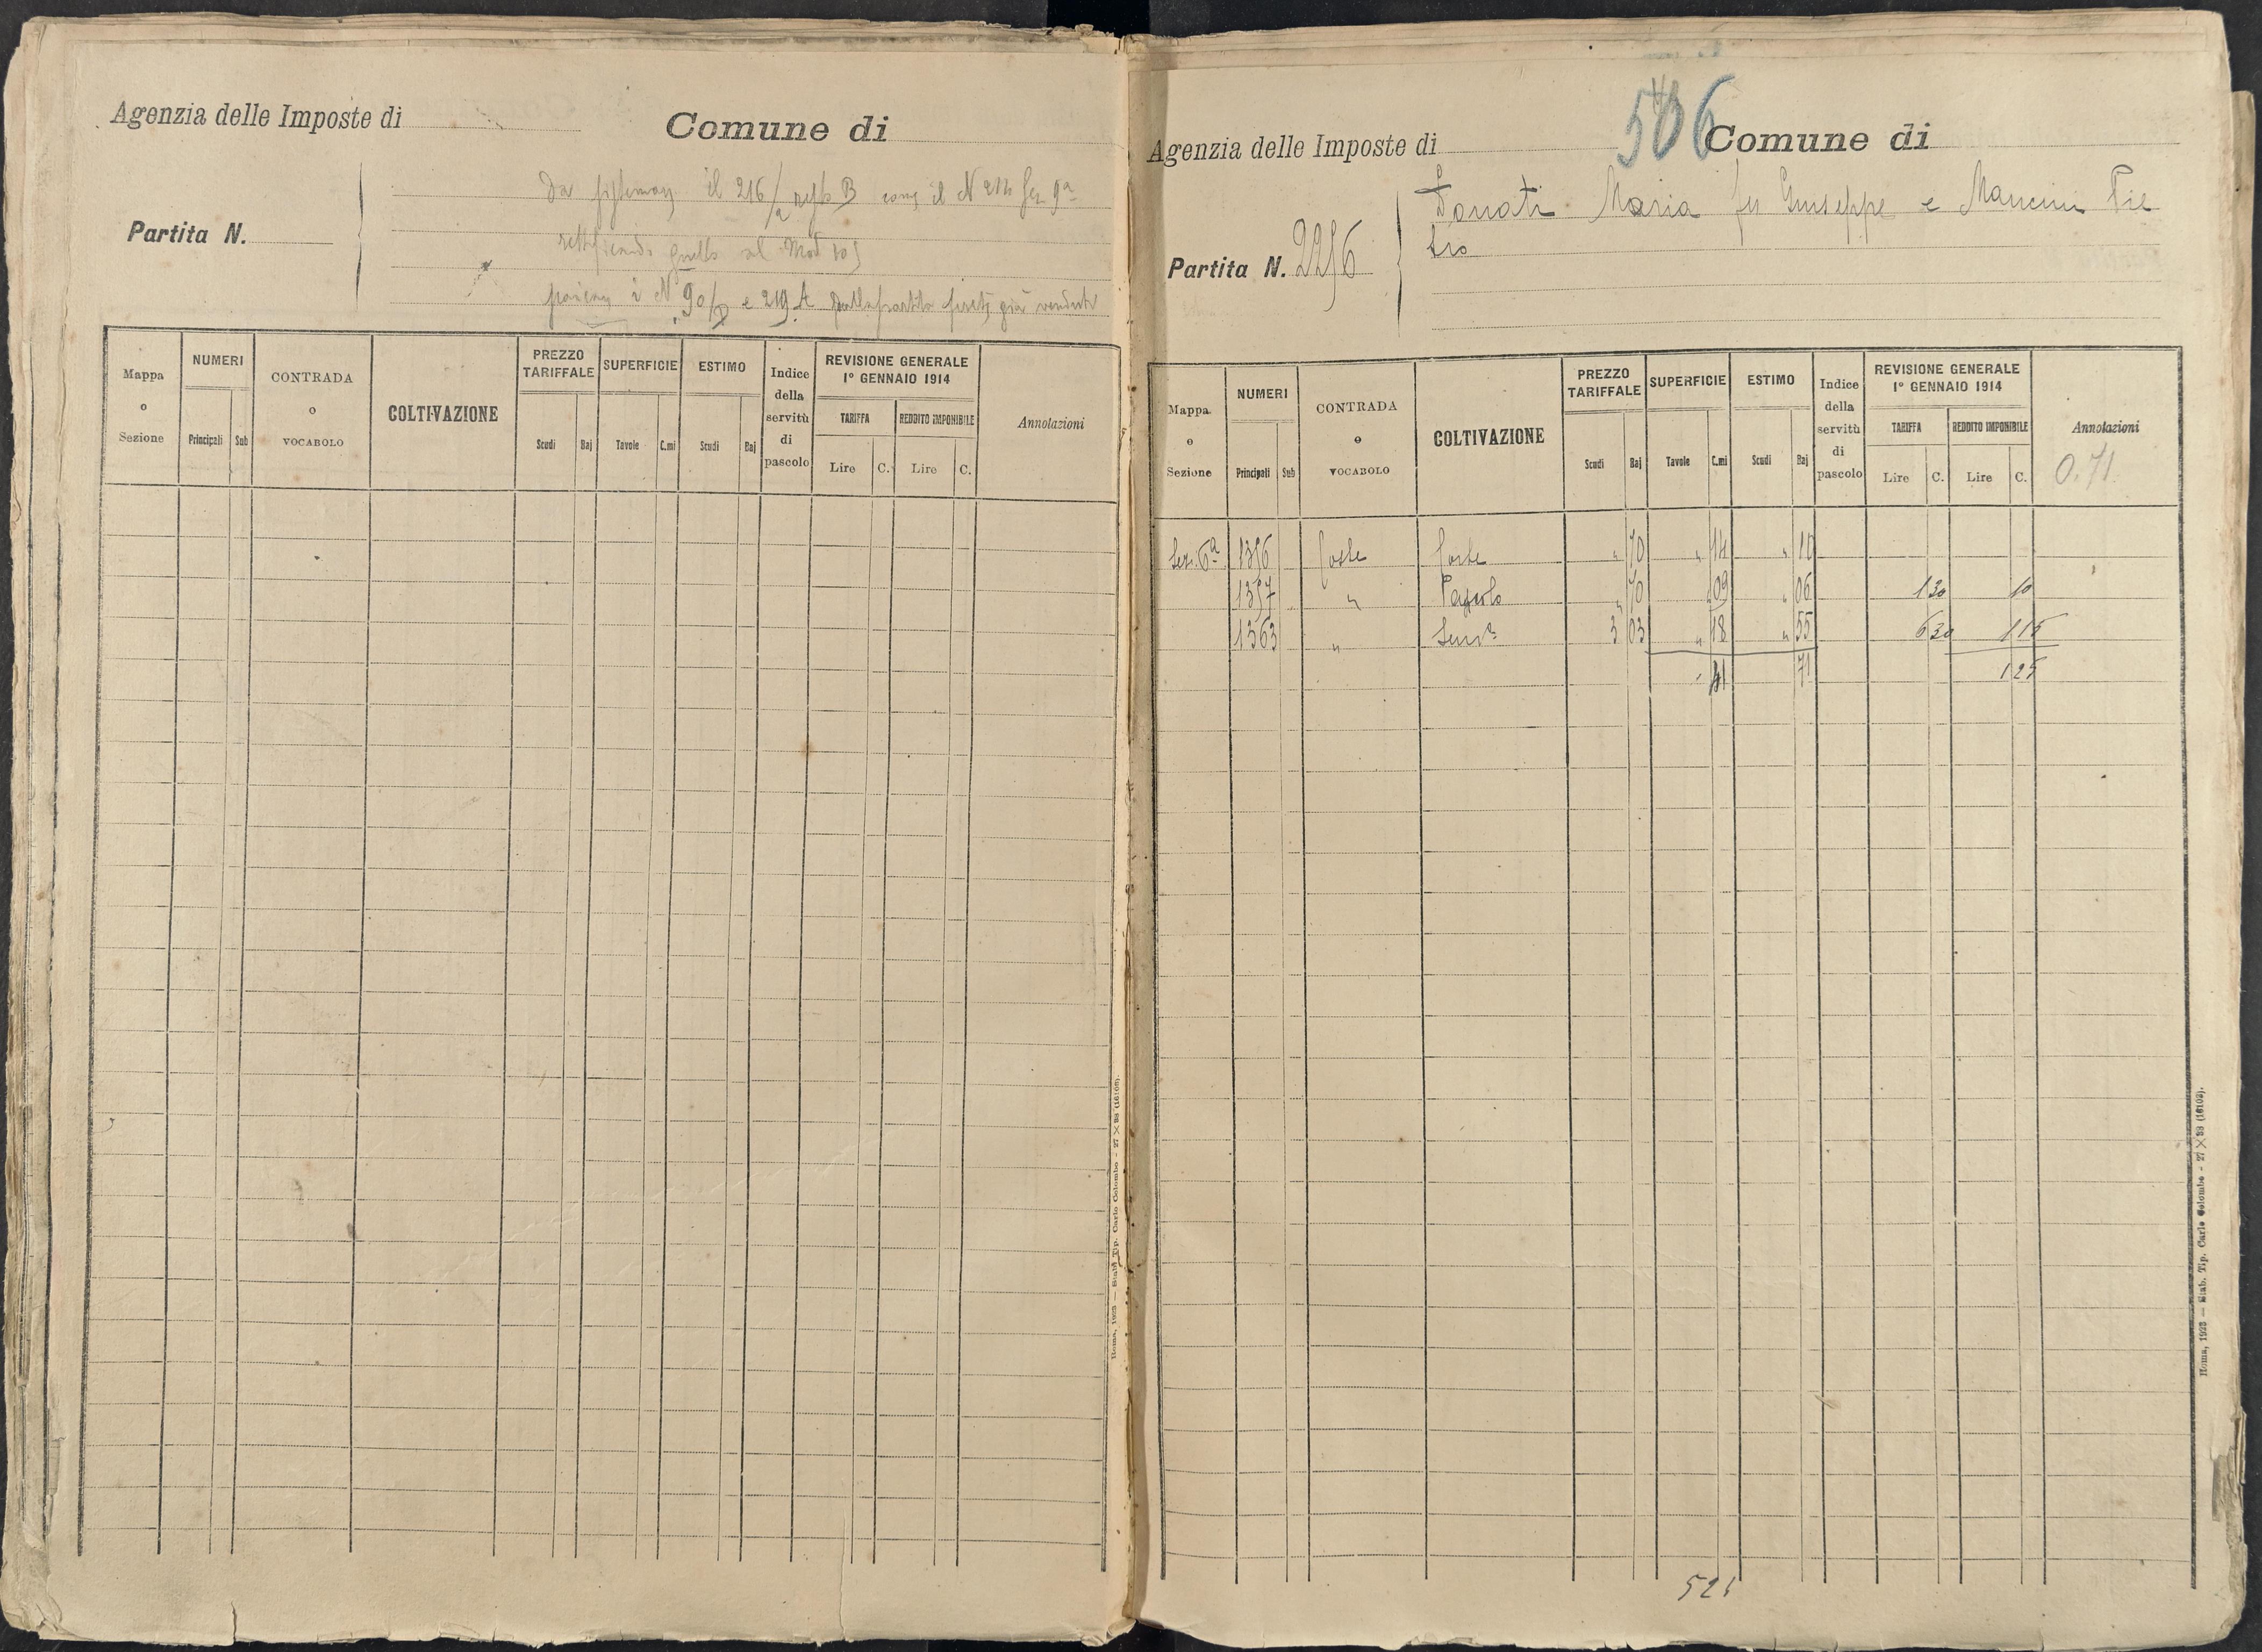 Agenzia delle Imposte di
Comune di
Da il 216/2 B N
Partita N.
rettificando quello al Mod
i N 90/D e 219 A dalla partita già
Mappa o Sezione
NUMERI
Principali Sub
CONTRADA o VOCABOLO
COLTIVAZIONE
PREZZO TARIFFALE
Scudi Baj
SUPERFICIE
Tavole C.mi
ESTIMO
Scudi Baj
Indice della servitù di pascolo
REVISIONE GENERALE
1º GENNAIO 1914
TARIFFA REDDITO IMPONIBILE
Lire C. Lire C.
Annotazioni
Roma, 1923 — Stab. Tip. Carlo Colombo - 27 × 38 (16103).
506
Agenzia delle Imposte di
Comune di
Donati Maria fu Giuseppe e Mancini Pie
tro
Partita N. 2256
Mappa o Sezione
NUMERI
Principali Sub
CONTRADA o VOCABOLO
COLTIVAZIONE
PREZZO TARIFFALE
Scudi Baj
SUPERFICIE
Tavole C.mi
ESTIMO
Scudi Baj
Indice della servitù di pascolo
REVISIONE GENERALE
1º GENNAIO 1914
TARIFFA REDDITO IMPONIBILE
Lire C. Lire C.
Annotazioni
0.71
Sez. 6ª 1356 Coste " 70 " 14 " 10
1357 " " 70 " 09 " 06 130 10
1363 " Semvº 3 03 " 18 " 55 630 115
" 41 71 125
521
Roma, 1923 — Stab. Tip. Carlo Colombo - 27 × 38 (16103).